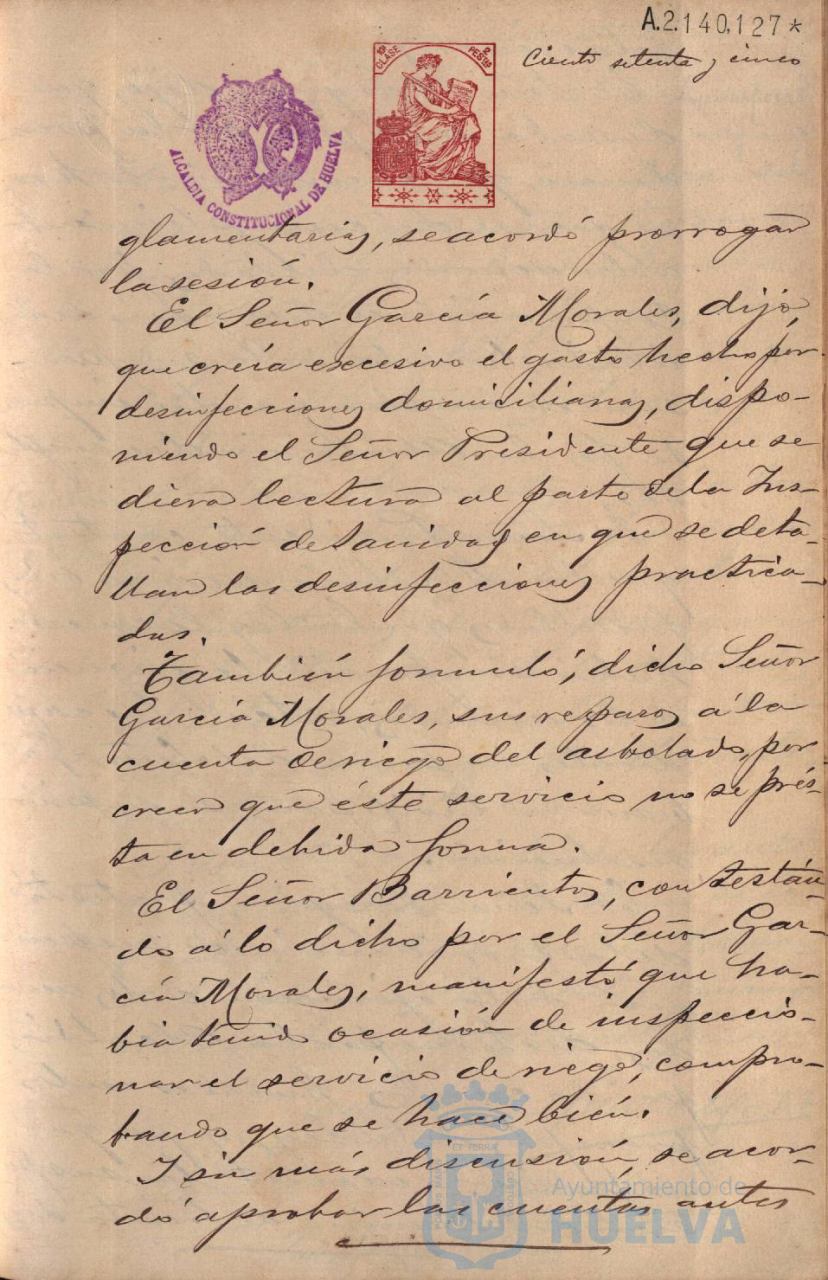 A.2.140,127*
Ciento setenta y cinco
10ª CLASE
2 PESTAS
ALCALDIA CONSTITUCIONAL DE HUELVA
glamentarias, se acordó prorrogar
la sesión.
El Señor García Morales, dijo,
que creía excesivo el gasto hecho por
desinfecciones domiciliarias, dispo-
niendo el Señor Presidente que se
diera lectura al parte de la Ins-
pección de Sanidad en que se deta-
llan las desinfecciones practica-
das.
También formuló, dicho Señor
García Morales, sus reparos á la
cuenta de riego del arbolado, por
creer que éste servicio no se prés-
ta en debida forma.
El Señor Barrientos, contestán-
do á lo dicho por el Señor Gar-
cía Morales, manifestó que ha-
bia tenido ocasión de inspeccio-
nar el servicio de riego, compro-
bando que se hace bién.
Y sin más discusión, se acor-
dó aprobar las cuentas antes
Ayuntamiento de
HUELVA